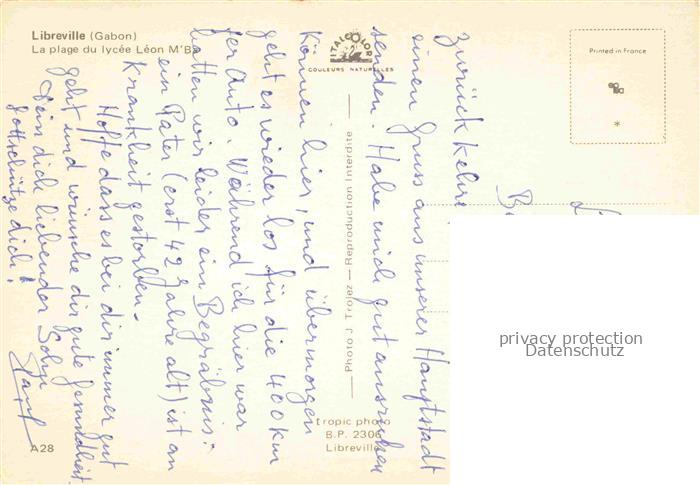 Libreville (Gabon)
La plage du lycée Léon M'Ba
ITALCOLOR
COULEURS NATURELLES
Printed in France
Photo J. Trolez — Reproduction Interdite
tropic photo
B.P. 2306
Libreville
A28
privacy protection
Datenschutz
zurück kehre
einen Gruss aus unserer Hauptstadt
senden. Habe mich gut ausruhen
können hier, und übermorgen
geht es wieder los für die 400 km
per Auto. Während ich hier war
hatten wir leider ein Begräbnis:
ein Pater (erst 42 Jahre alt) ist an
Krankheit gestorben.
Hoffe dass es bei dir immer gut
geht und wünsche dir gute Gesundheit.
Dein dich liebender Sohn
Gott schütze dich!